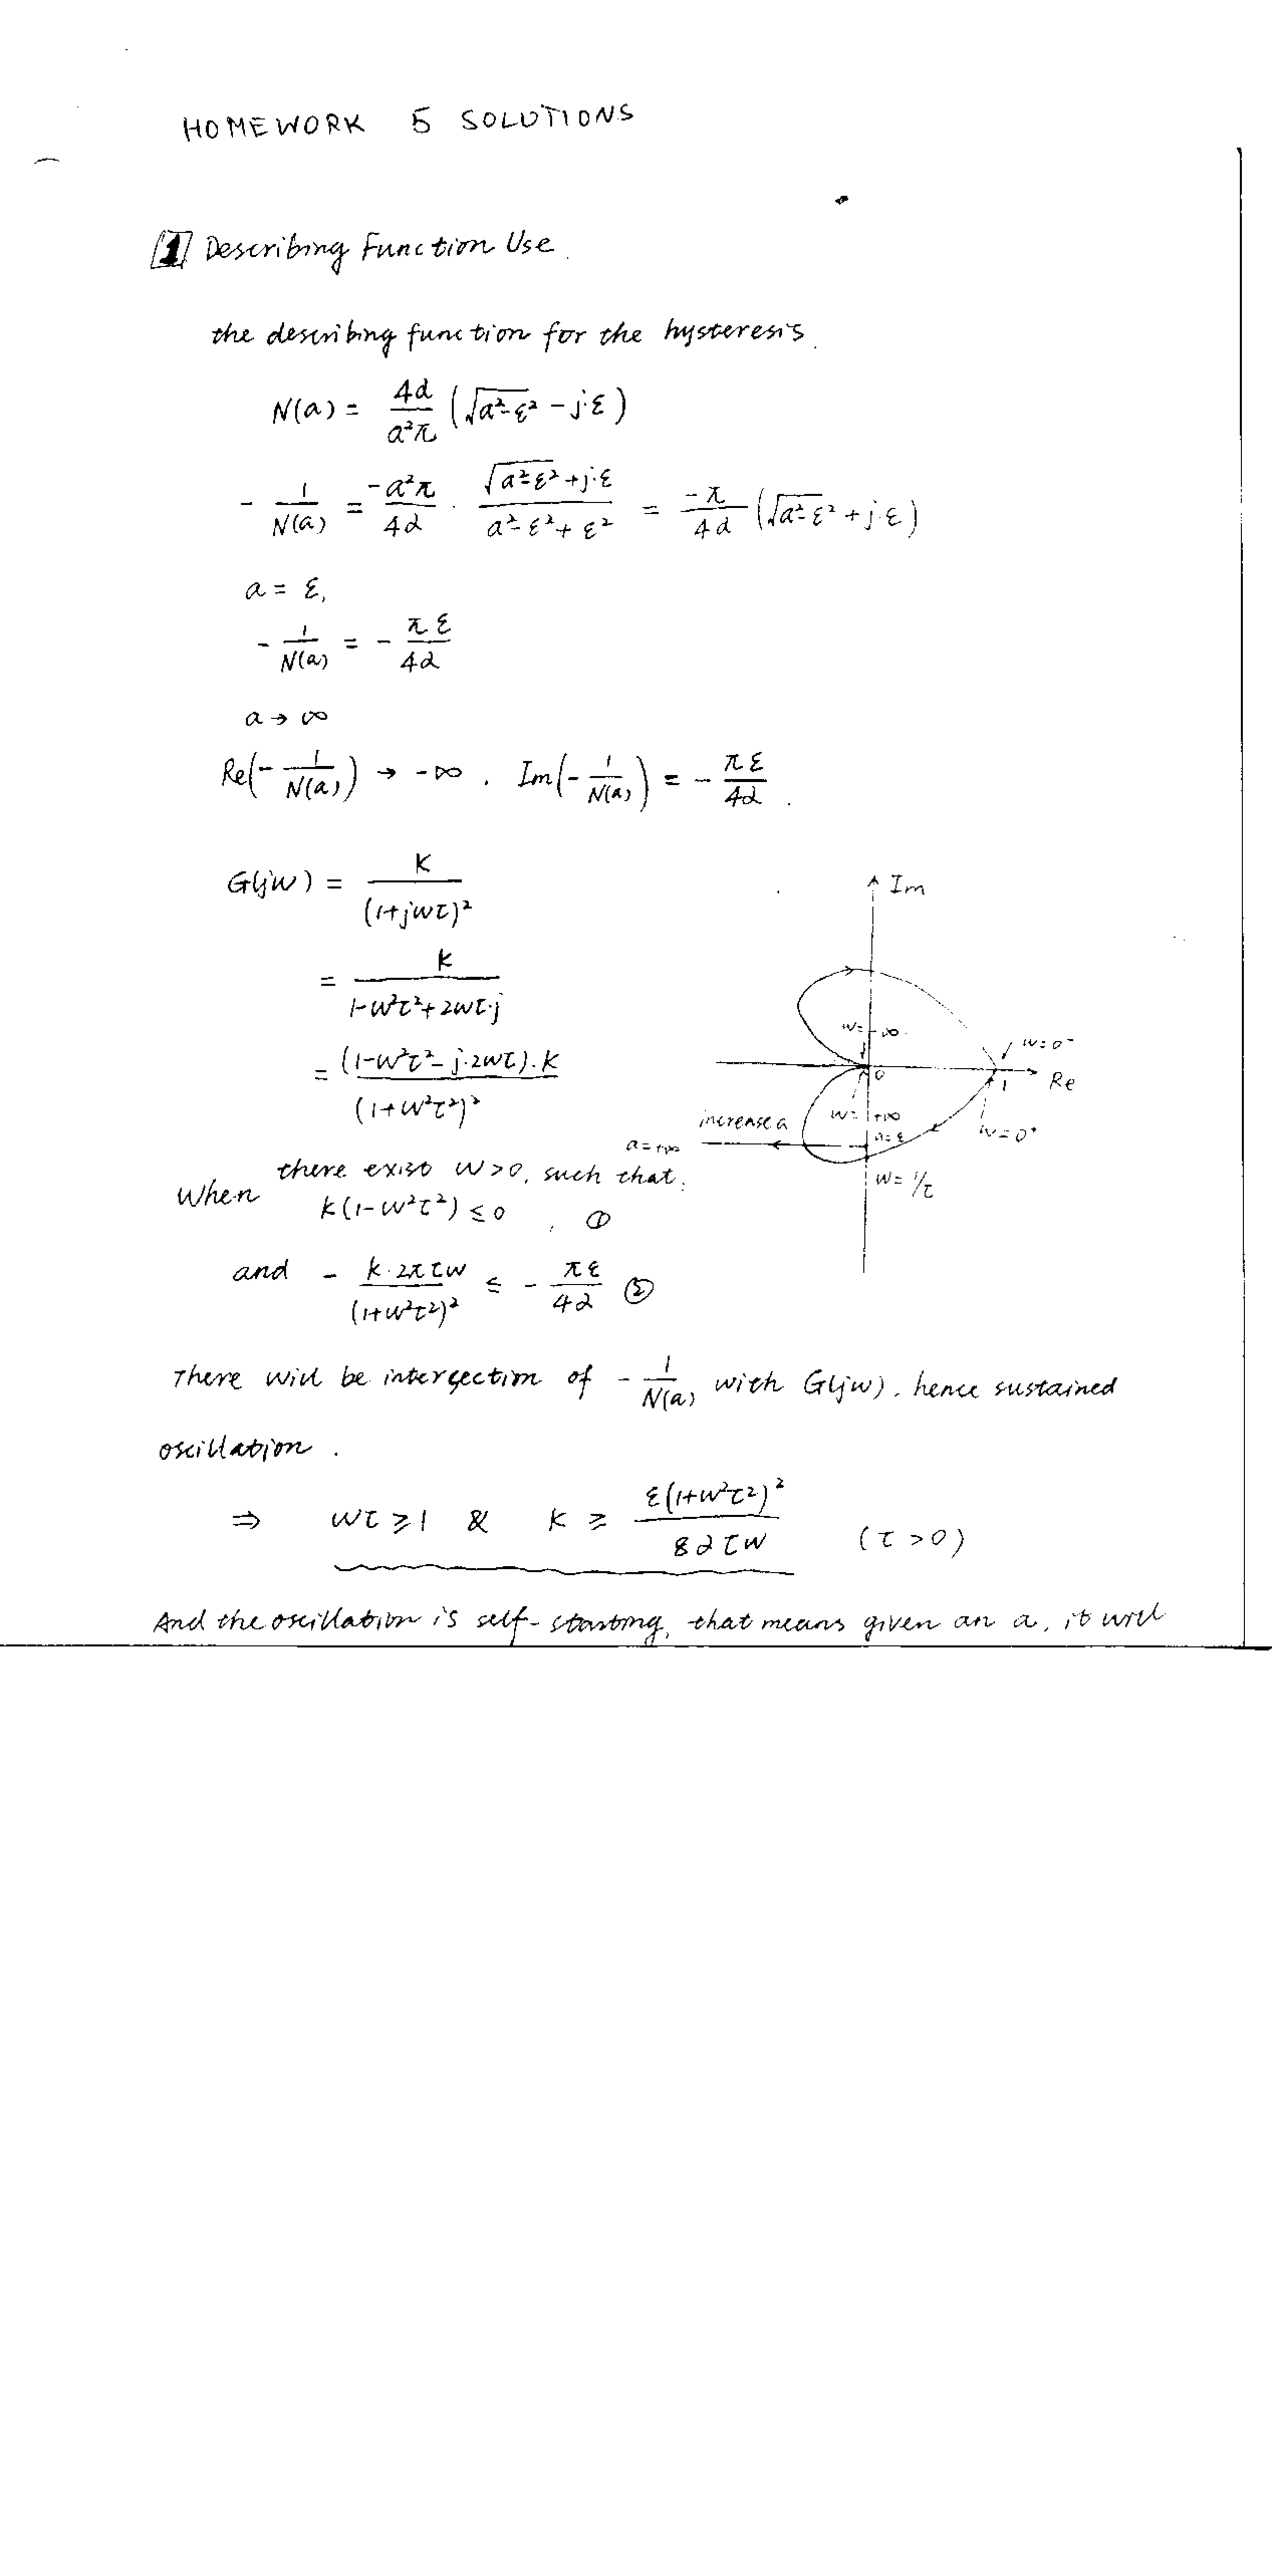 HOMEWORK 5 SOLUTIONS
1 Describing Function Use.
the describing function for the hysteresis.
N(a) = 4d/(a²π) (√(a²-ε²) - j·ε)
- 1/N(a) = -a²π/4d · (√(a²-ε²) + j·ε)/(a²-ε²+ε²) = -π/4d (√(a²-ε²) + j·ε)
a = ε,
- 1/N(a) = - πε/4d
a → ∞
Re(- 1/N(a)) → -∞ . Im(- 1/N(a)) = - πε/4d .
G(jw) = K/(1+jwτ)²
= K/(1-w²τ²+2wτ·j)
= (1-w²τ²-j·2wτ)·K/(1+w²τ²)²
Im
w=-∞
w=0⁻
0
1
Re
w=+∞
w=0⁺
increase a
a=+∞
a=ε
w=1/τ
When there exist w>0, such that:
K(1-w²τ²) ≤ 0 , ①
and - K·2πτw/(1+w²τ²)² ≤ - πε/4d ②
There will be intersection of - 1/N(a) with G(jw), hence sustained
oscillation.
⇒ wτ ≥ 1 & K ≥ ε(1+w²τ²)²/8dτw (τ>0)
And the oscillation is self-starting, that means given an a, it will